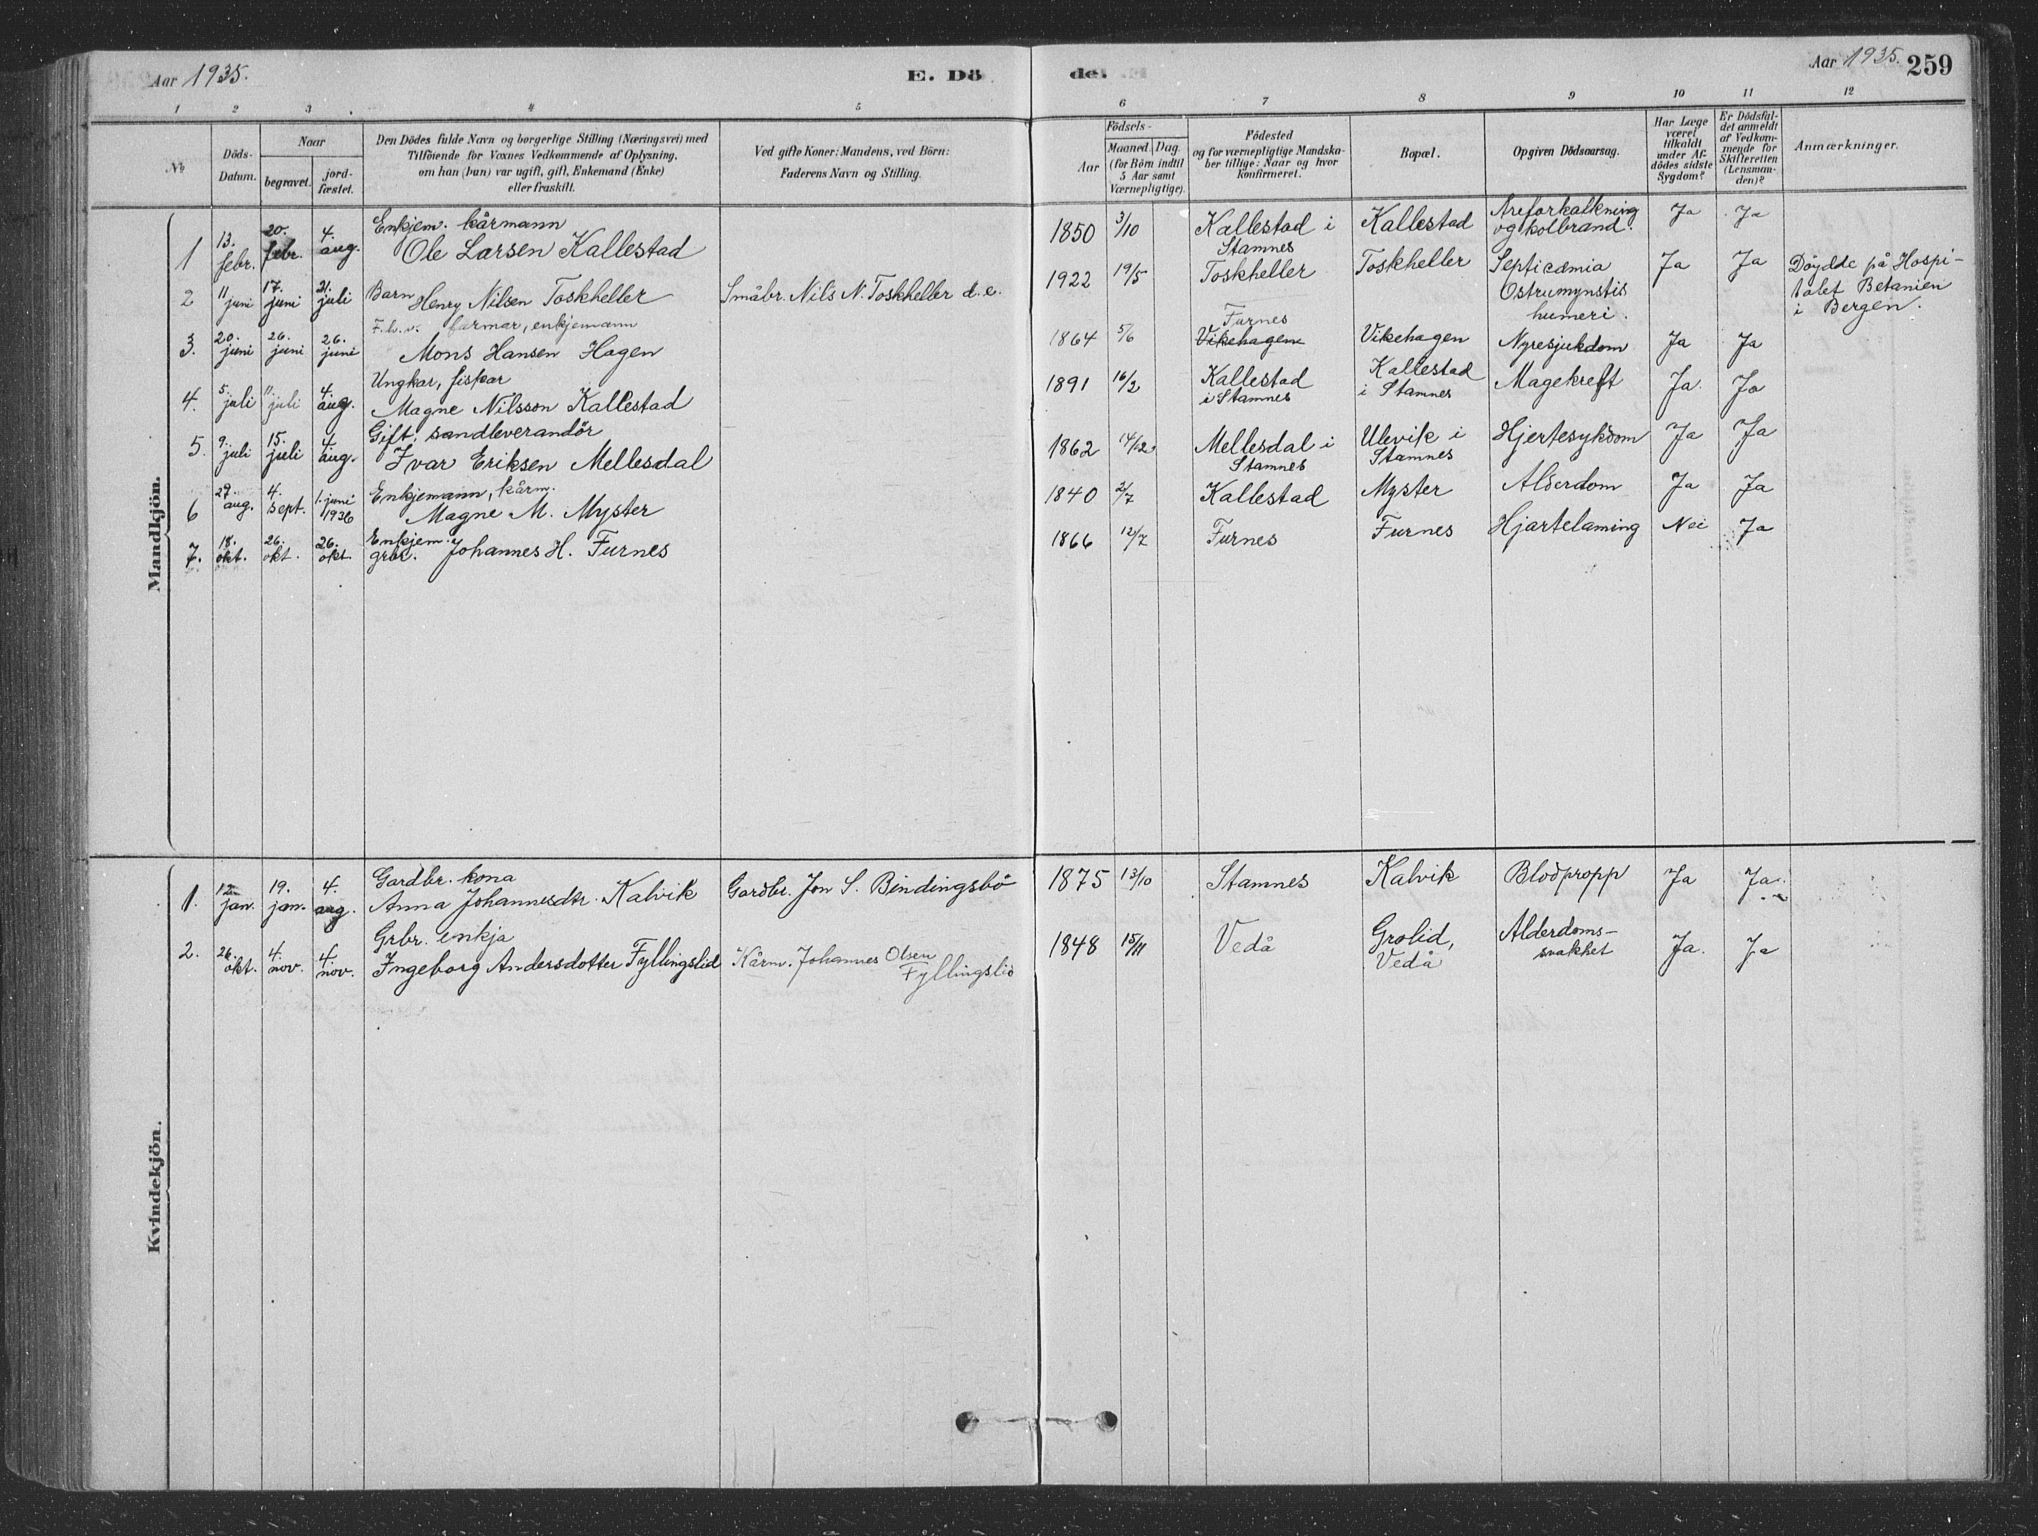 Aar 1935.
E. Dö
de.
Aar 1935.
259
1 2 3 4 5 6 7 8 9 10 11 12
No
Döds-
Datum.
Naar
begravet.
jord-
fæstet.
Den Dödes fulde Navn og borgerlige Stilling (Næringsvei) med
Tilföiende for Voxnes Vedkommende af Oplysning,
om han (hun) var ugift, gift, Enkemand (Enke)
eller fraskilt.
Ved gifte Koner: Mandens, ved Börn:
Faderens Navn og Stilling.
Födsels-
Aar
Maaned. Dag.
(for Börn indtil
5 Aar samt
Værnepligtige).
Födested
og for værnepligtige Mandska-
ber tillige: Naar og hvor
Konfirmeret.
Bopæl.
Opgiven Dödsaarsag.
Har Læge
været
tilkaldt
under Af-
dödes sidste
Sygdom?
Er Dödsfal-
det anmeldt
af Vedkom-
mende for
Skifteretten
(Lensman-
den)?
Anmærkninger.
Mandkjön.
1 13. febr. 20. febr. 4. aug. Enkjem. kårmann
Ole Larsen Kallestad
1850 3/10 Kallestad i Stamnes Kallestad Areforkalkning og kolbrand. Ja Ja
2 11 juni 17. juni 21. juli Barn Henry Nilsen Toskheller Småbr. Nils N. Toskheller d.e.
1922 19/5 Toskheller Toskheller Septicæmia Ja Ja Döydde på Hospi-
talet Betanien
i Bergen.
humeri.
3. 20. juni 26. juni 26. juni F.h.v. farmar, enkjemann
Mons Hansen Hagen
1864 5/6 Furnes Vikehagen Vikehagen Nyresjukdom Ja Ja
4. 5. juli 11 juli 4. aug. Ungkar, fiskar
Magne Nilsson Kallestad
1891 16/2 Kallestad i Stamnes Kallestad i Stamnes Magekreft Ja. Ja
5. 9. juli 15. juli 4. aug. Gift, sandleverandör
Ivar Eriksen Mellesdal
1862 14/12 Mellesdal i Stamnes Ulevik i Stamnes Hjertesykdom Ja Ja
6 27. aug. 4. sept. 1. juni 1936 Enkjemann, kårm.
Magne M. Myster
1840 2/7 Kallestad Myster Alderdom Ja Ja
7. 18. okt. 26. okt. 26. okt. Enkjem.
grbr. Johannes H. Furnes
1866 12/7 Furnes Furnes Hjartelaming Nei Ja
Kvindekjön.
1. 12 jan. 19. jan. 4. aug. Gardbr. kona
Anna Johannesdtr. Kalvik Gardbr. Jon S. Bindingsbö
1875 13/10 Stamnes Kalvik Blodpropp Ja Ja.
2. 26. okt. 4. nov. 4. nov. Grbr. enkja
Ingeborg Andersdotter Fyllingslid Kårm. Johannes Olsen
Fyllingslid
1848 15/11 Vedå Grolid, Vedå Alderdoms-
svakhet Ja. Ja